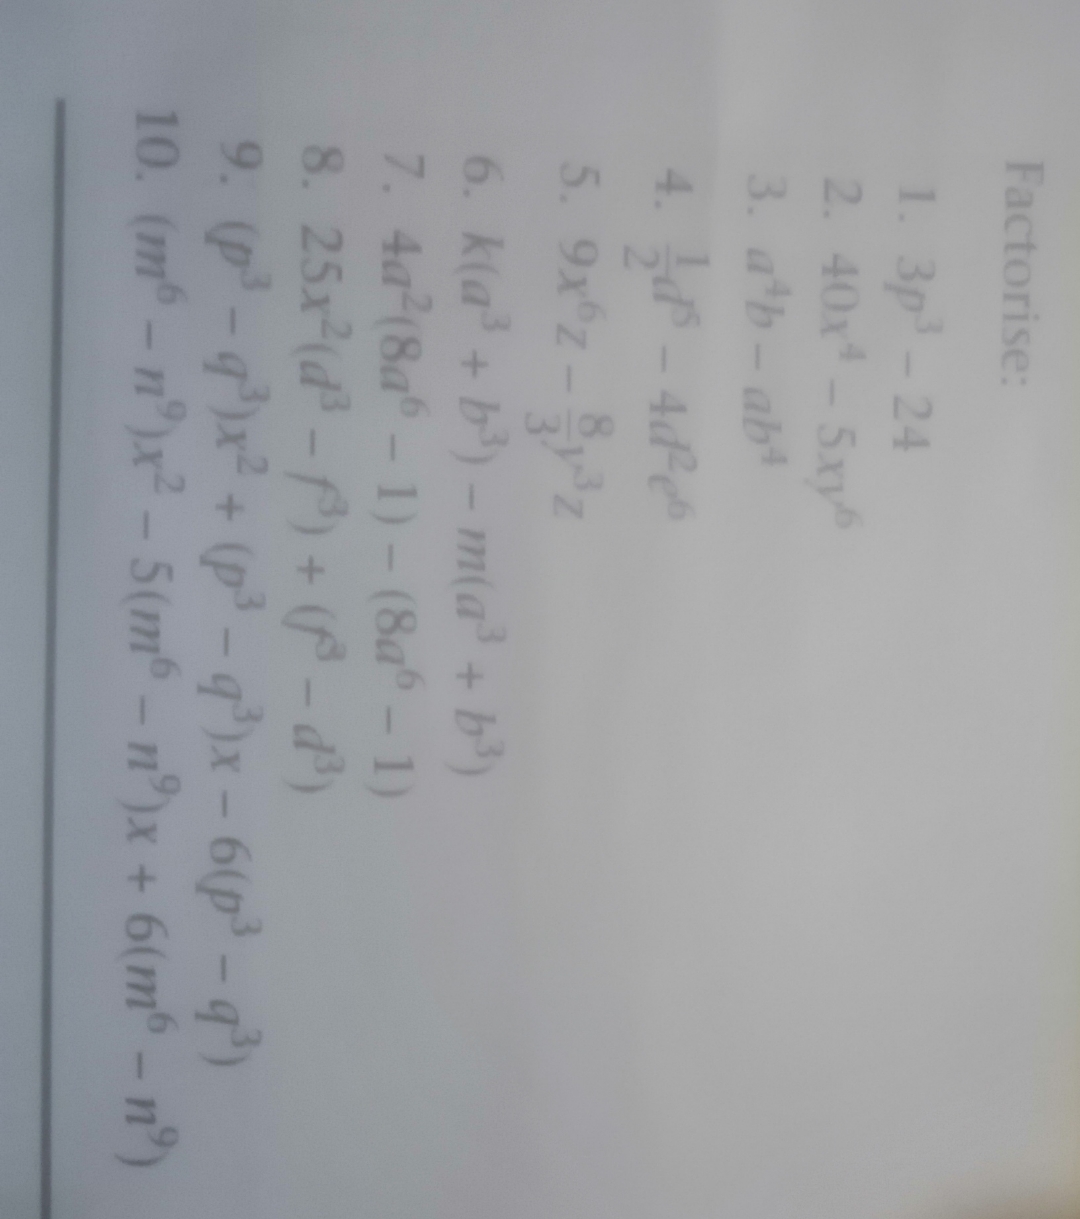 Factorise:
1. 3p³ − 24
2. 40x⁴ − 5xy⁶
3. a⁴b − ab⁴
4. ½d⁵ − 4d²e⁶
5. 9x⁶z − 8/3 y³z
6. k(a³ + b³) − m(a³ + b³)
7. 4a²(8a⁶ − 1) − (8a⁶ − 1)
8. 25x²(d³ − f³) + (f³ − d³)
9. (p³ − q³)x² + (p³ − q³)x − 6(p³ − q³)
10. (m⁶ − n⁹)x² − 5(m⁶ − n⁹)x + 6(m⁶ − n⁹)